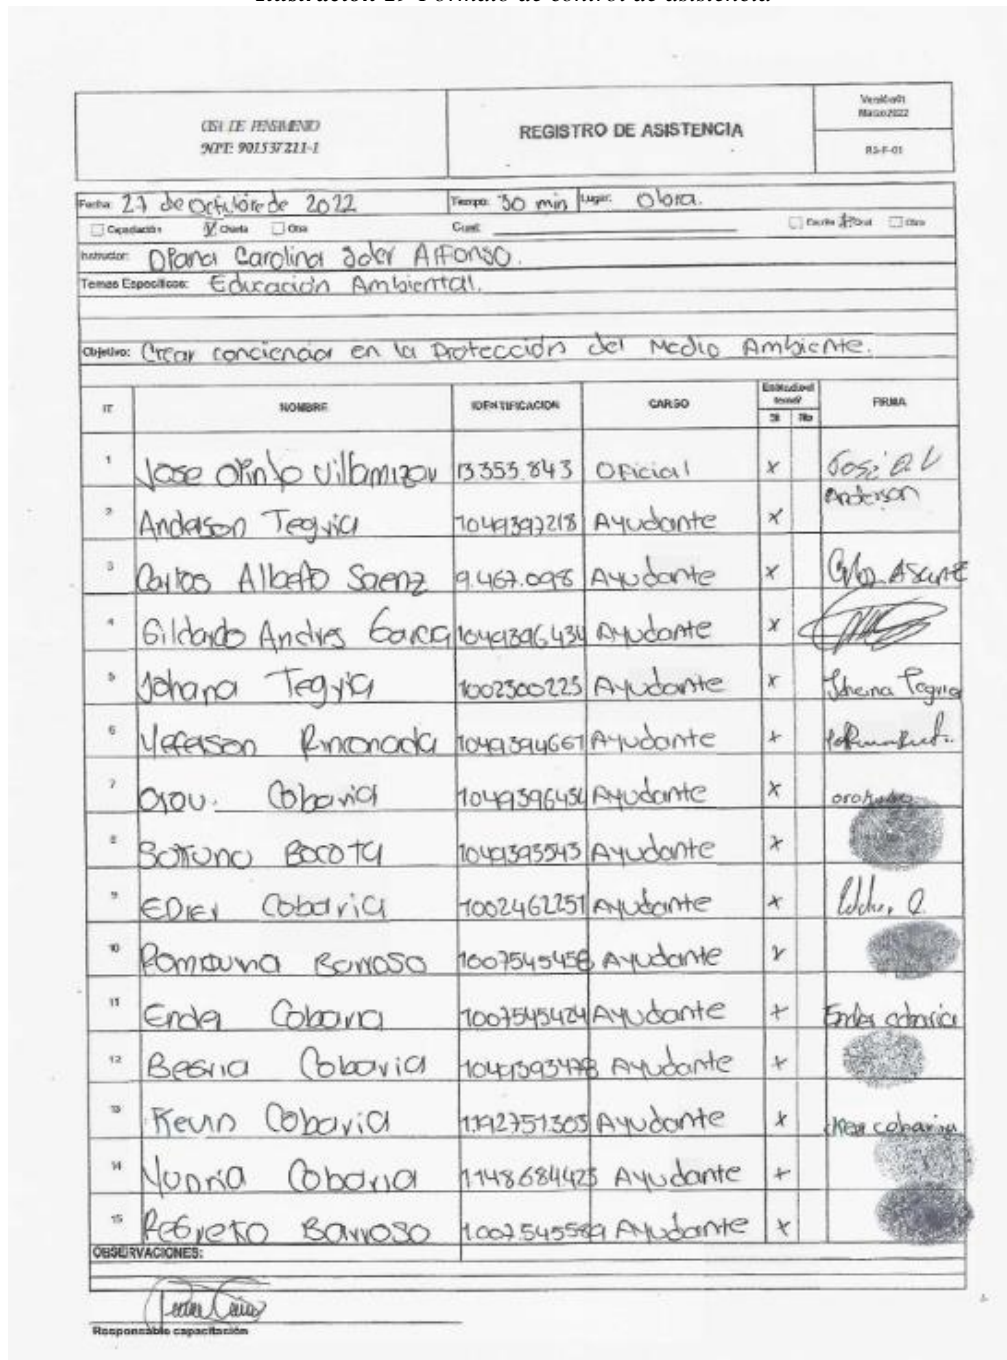 Ilustración 19 Formato de control de asistencia
NIT: 901537211-1
REGISTRO DE ASISTENCIA
Versión 01
Marzo 2022
RS-F-01
Fecha: 27 de Octubre de 2022 Tiempo: 30 min Lugar: Obra.
Capacitación Charla Otra Cual: Escrita Oral Otro
Instructor: Diana Carolina Soler Alfonso.
Temas Específicos: Educación Ambiental.
Objetivo: Crear conciencia en la Protección del Medio Ambiente.
IT NOMBRE IDENTIFICACION CARGO FIRMA
Si No
1 Jose Olinto Villamizar 13.353.843 Oficial x José O.V
2 Anderson Tegria 1049397218 Ayudante x Anderson
3 Carlos Alberto Saenz 9.467.098 Ayudante x
4 Gildardo Andres Garcia 1049396434 Ayudante x
5 Johana Tegria 1002300225 Ayudante x Johana Tegria
6 Yeferson Rinconada 1049394661 Ayudante x
7 Cobaria Ayudante x
8 Bocota 1049393543 Ayudante x
9 EDier Cobaria 1002462251 Ayudante x
10 Barroso 1007545458 Ayudante x
11 Ender Cobaria 1007545424 Ayudante x Ender cobaria
12 Cobaria Ayudante x
13 Kevin Cobaria 1192751305 Ayudante x Kev cobaria
14 Cobaria Ayudante x
15 Barroso Ayudante x
OBSERVACIONES:
Responsable capacitación